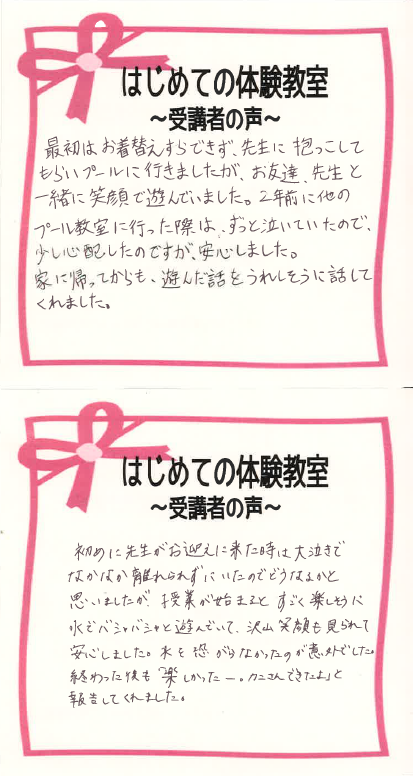 はじめての体験教室
～受講者の声～
最初はお着替えすらできず、先生に抱っこして
もらいプールに行きましたが、お友達、先生と
一緒に笑顔で遊んでいました。2年前に他の
プール教室に行った際は、ずっと泣いていたので、
少し心配したのですが、安心しました。
家に帰ってからも、遊んだ話をうれしそうに話して
くれました。
はじめての体験教室
～受講者の声～
初めに先生がお迎えに来た時は大泣きで
なかなか離れられずにいたのでどうなるかと
思いましたが、授業が始まると すごく楽しそうに
水でバシャバシャと遊んでいて、沢山笑顔も見られて
安心しました。水を恐がらなかったのが意外でした。
終わった後も「楽しかったー。カニさんできたよ」と
報告してくれました。